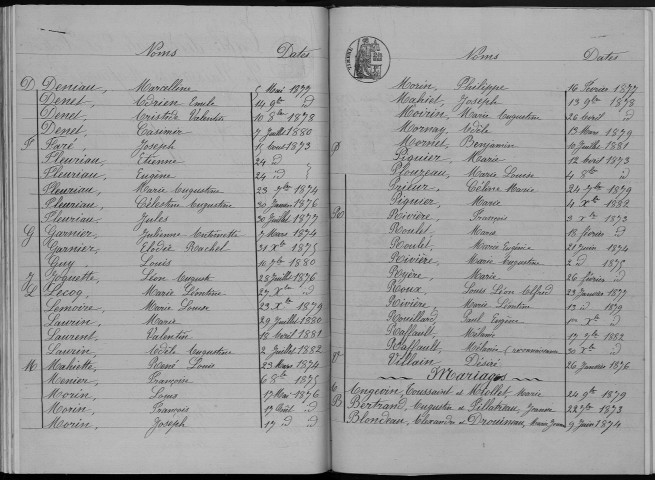 Noms Dates
D Deniau, Marcelline 5 Mai 1877
Denet, Adrien Emile 14 9bre id
Denet, Aristide Valentin 10 8bre 1878
Denet, Casimir 7 Juillet 1880
F Faré, Joseph 1873
Fleuriau, Etienne 24 id
Fleuriau, Eugène 24 id
Fleuriau, Marie Augustine 23 7bre 1874
Fleuriau, Célestine Augustine 30 Janvier 1876
Fleuriau, Jules 30 Juillet 1877
G Garnier, Julienne Antoinette 7 Mars 1874
Garnier, Elodie Rachel 31 Xbre 1875
Guy, Louis 10 7bre 1880
J Joquette, Léon August 28 Juillet 1876
L Lecoq, Marie Léontine 27 Xbre id
Lemoine, Marie Louise 23 Xbre 1879
Laurin, Marie 29 Juillet 1880
Laurent, Valentin 18 Avril 1881
Laurin, Adèle Augustine 2 Juillet 1882
M Mahiette, René Louis 23 Mars 1874
Menier, François 6 8bre 1875
Morin, Louis 17 Mai 1876
Morin, François 17 Août id
Morin, Joseph 17 id id
Noms Dates
Morin, Philippe 16 Février 1877
Mahiet, Joseph 13 9bre 1878
Moirin, Marie Augustine 26 Avril id
Mornay, Adèle 13 Mars 1879
Mornet, Benjamin 10 Juillet 1881
P Piquier, Marie 12 Avril 1873
Plouzeau, Marie Louise 4 8bre id
Prieur, Célina Marie 24 7bre 1879
Piquier, Marie 4 Xbre 1882
R Rivière, François 3 Xbre 1873
Roulet, Marie 18 février id
Roulet, Marie Eugénie 21 Juin 1874
Rivière, Marie Augustine 2 id 1875
Royère, Marie 26 février id
Roux, Louis Léon Alfred 23 Janvier 1877
Rivière, Marie Léontine 13 id 1879
Rouillard, Paul Eugène Xbre id
Raffault, Mélanie 17 7bre 1882
Raffault, Mélanie (reconnaissance 30 Xbre id
V Villain, Désiré 26 Janvier 1876
Mariages
A Angevin, Toussaint et Mollet, Marie 24 9bre 1879
B Bertrand, Augustin et Pellatreau, Jeanne 22 7bre 1873
Blondeau, Alexandre et Drouineau, Marie Jeanne 9 Juin 1874